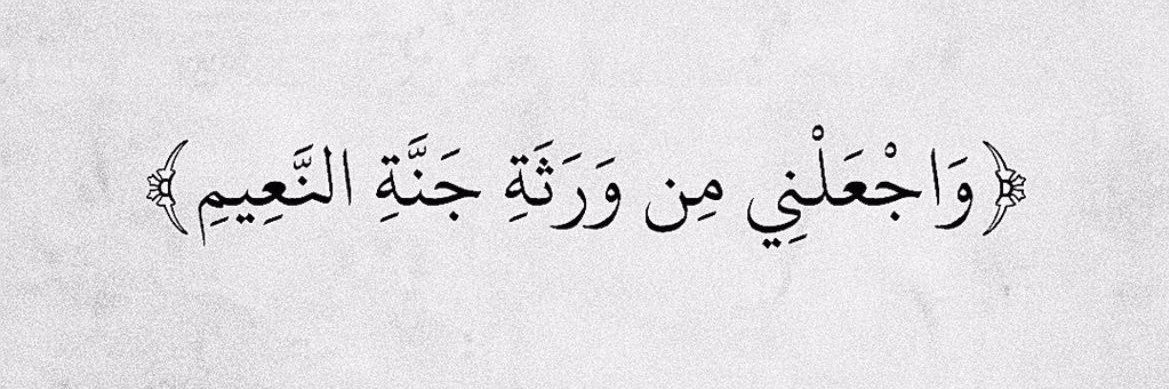 ﴿وَاجْعَلْنِي مِن وَرَثَةِ جَنَّةِ النَّعِيمِ﴾